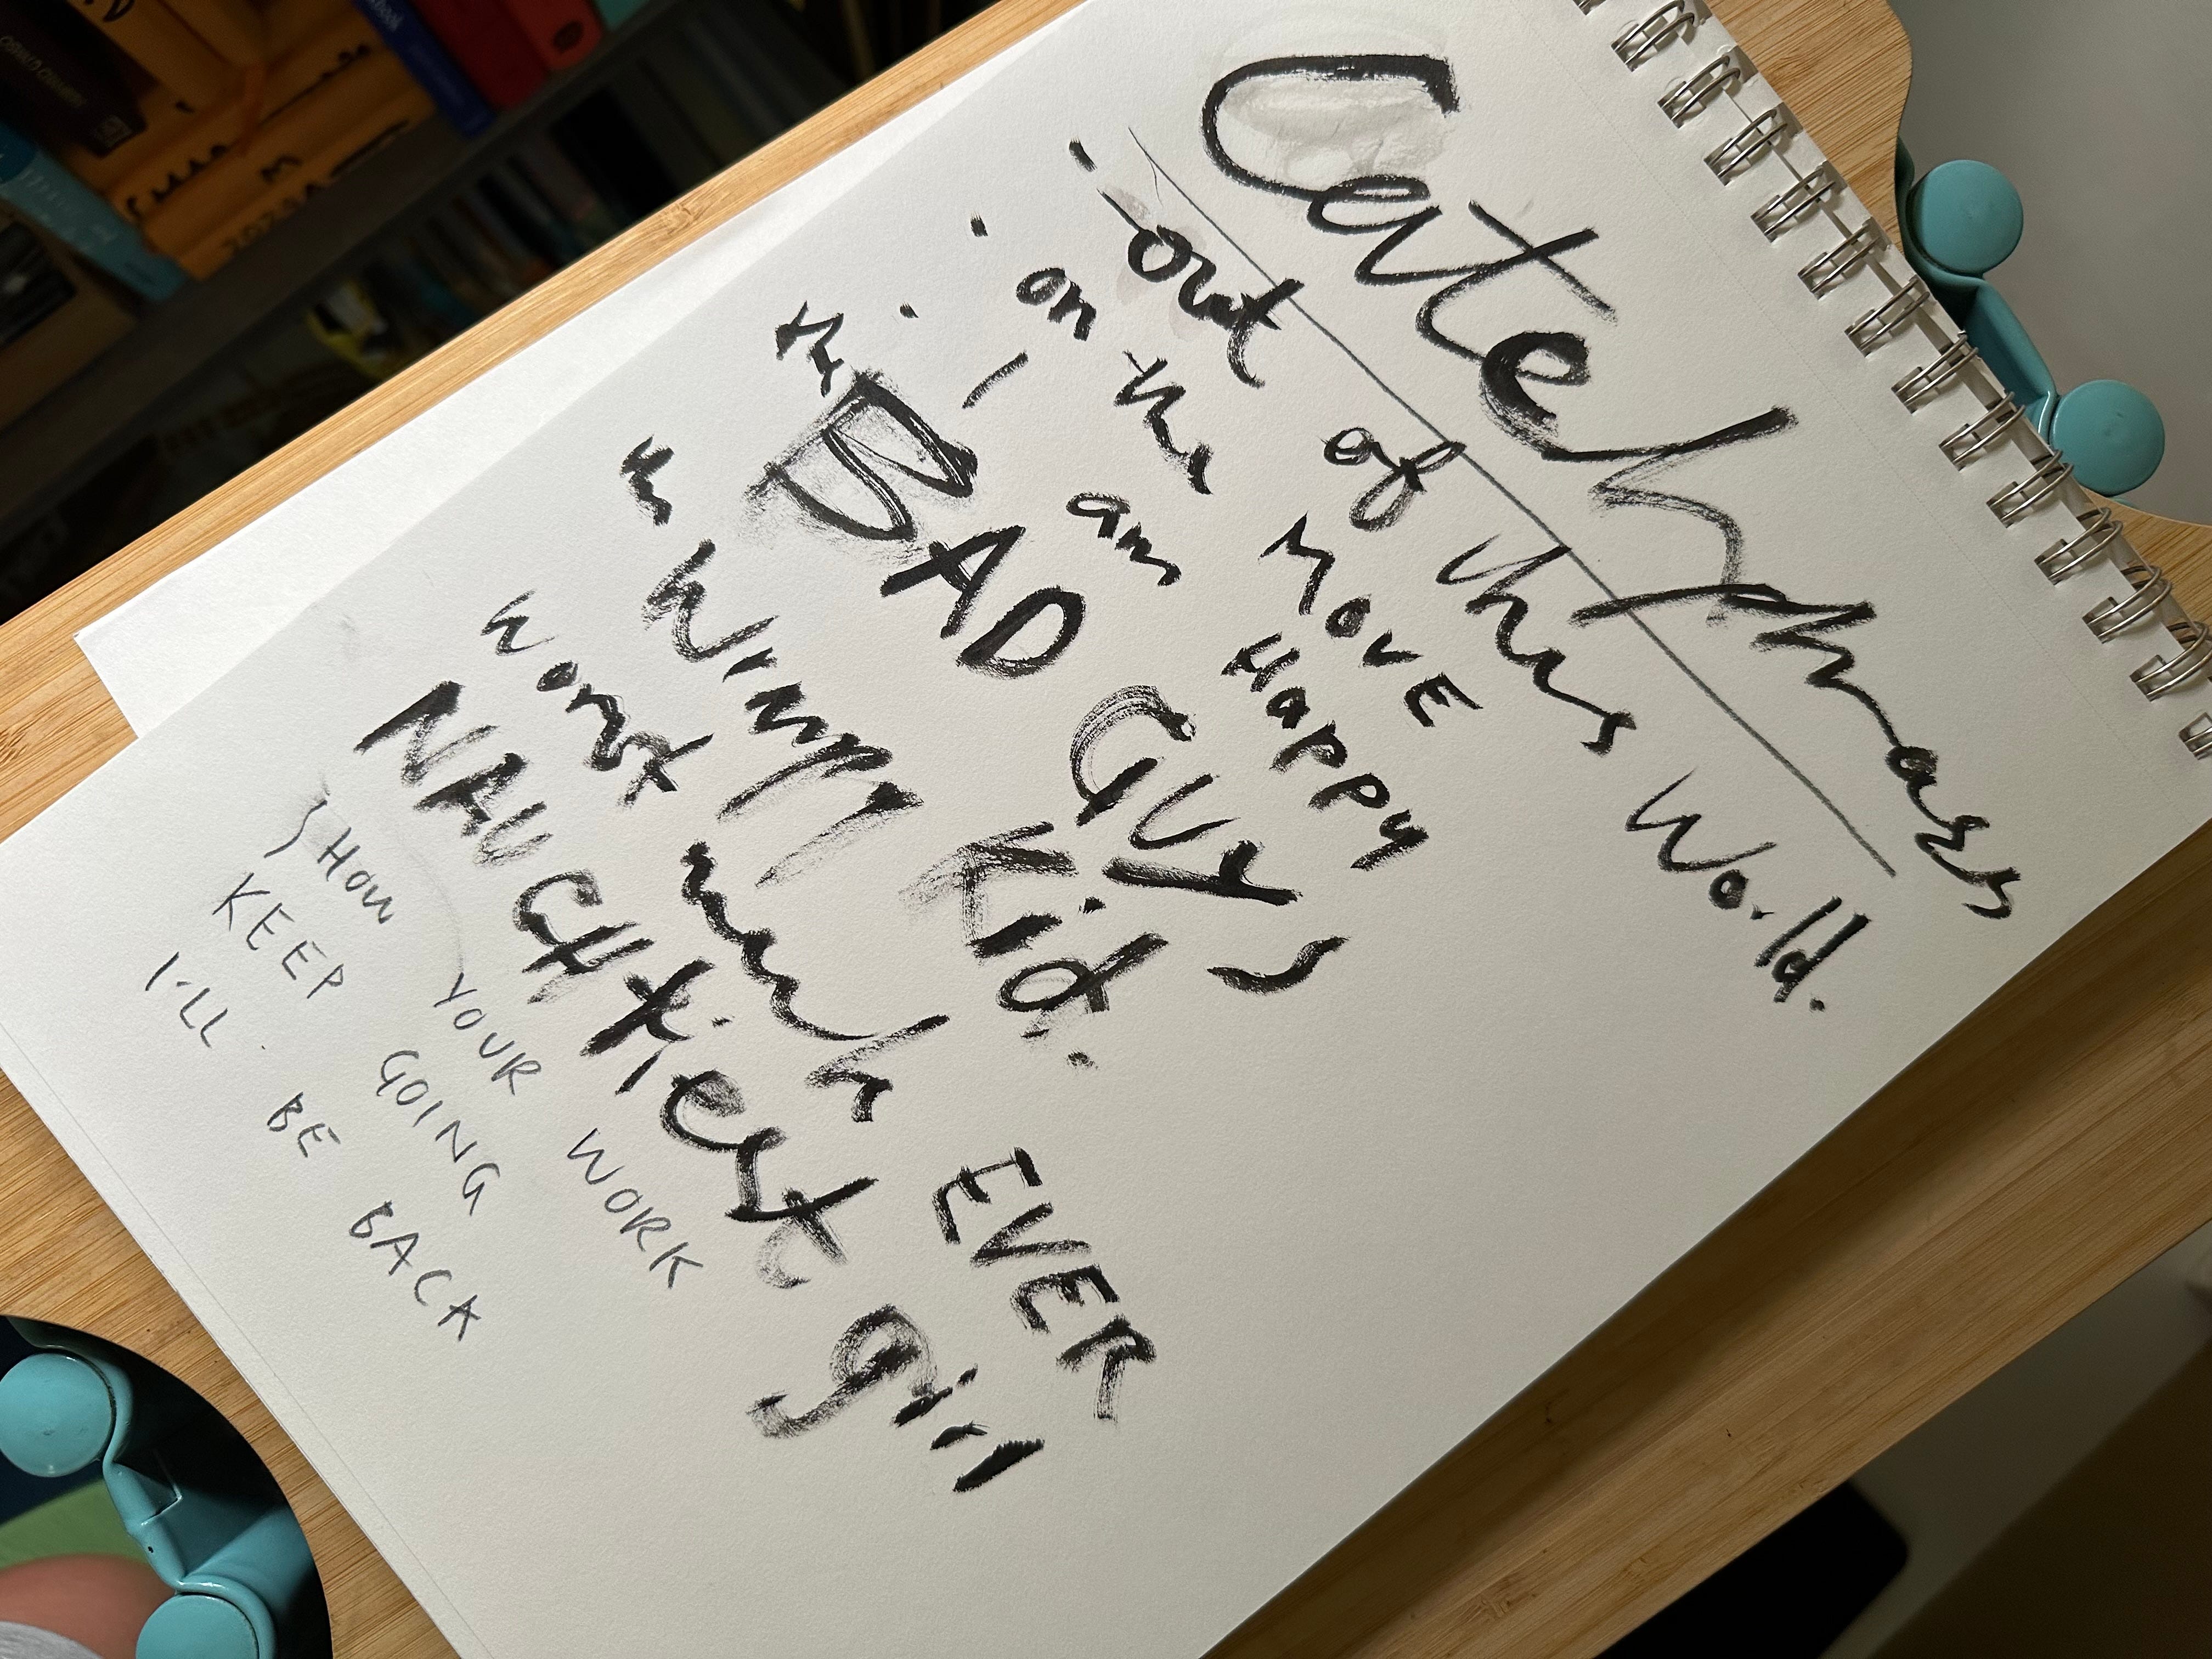 Catchphrases
. out of this world.
. on the MOVE
. I am Happy
the BAD GUYS
the Wimpy Kid.
worst week EVER
NAUGHtiest girl
SHOW YOUR WORK
KEEP GOING
I'LL BE BACK